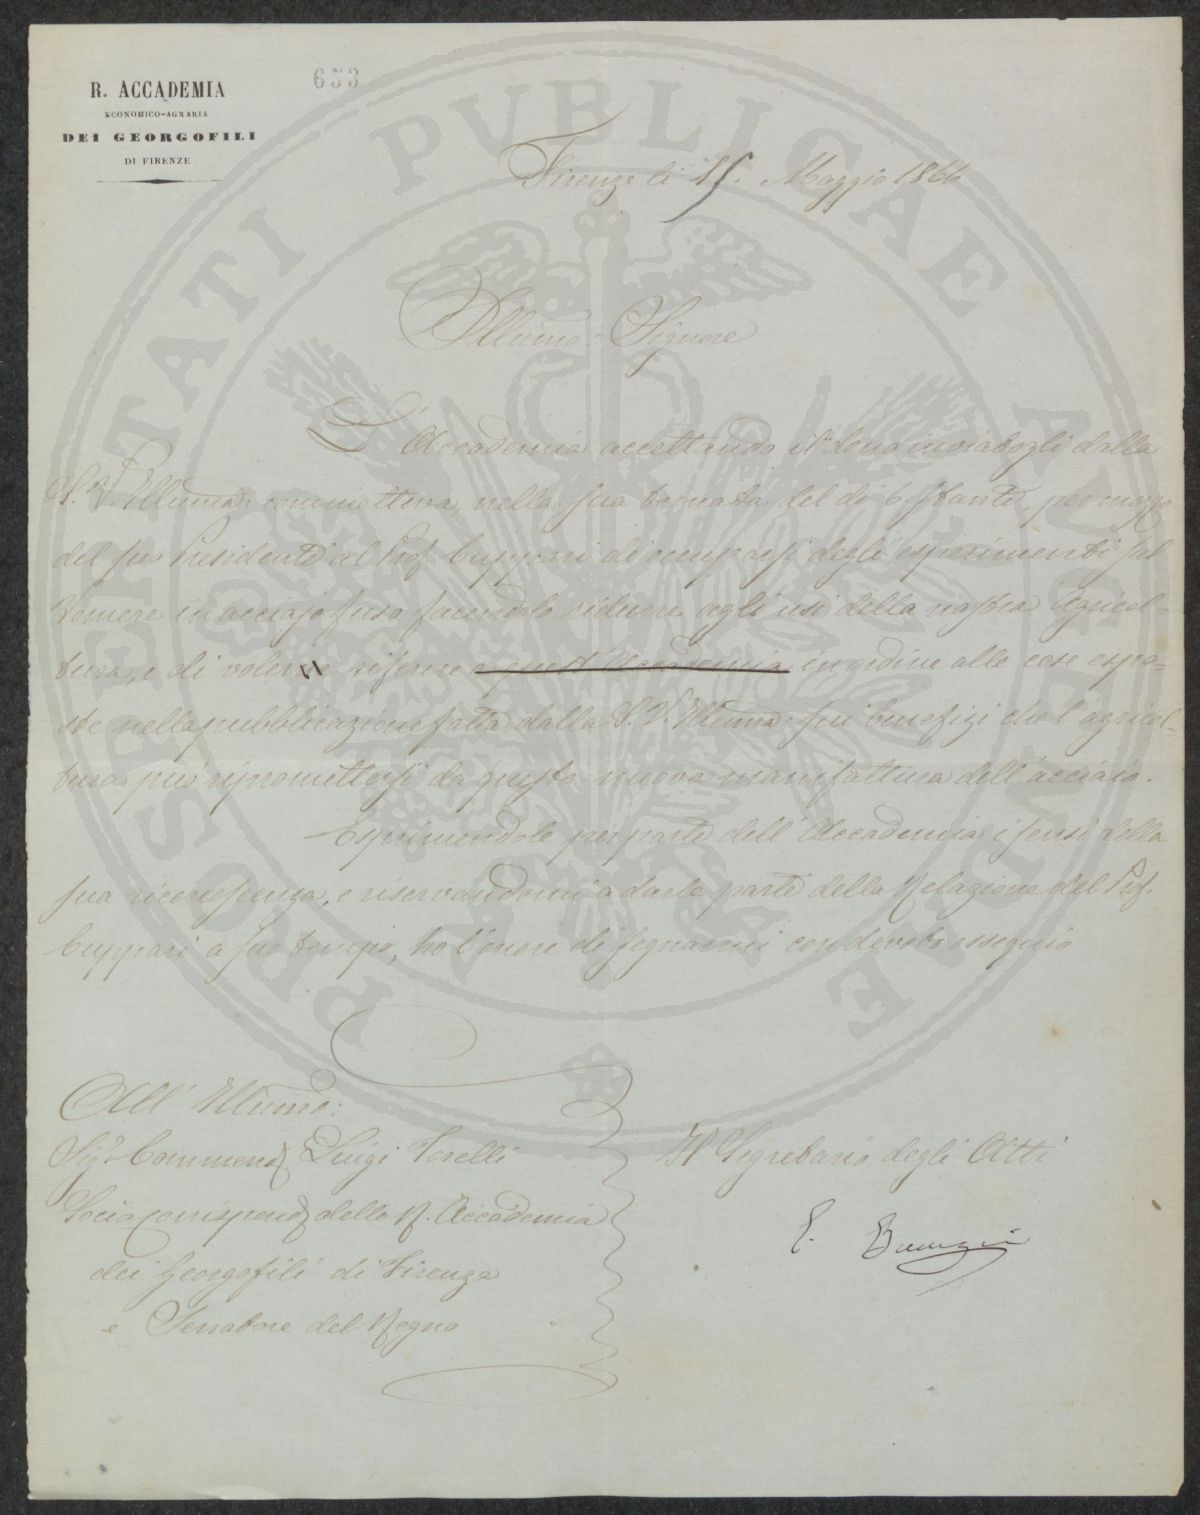 R. ACCADEMIA
ECONOMICO-AGRARIA
DEI GEORGOFILI
DI FIRENZE
653
Firenze li 15. Maggio 1864
Illumo: Signore
L'Accademia accettando il dono inviatogli dalla
S. V. Illuma: commetteva, nella sua tornata del dì 6. stante, per mezzo
del suo Presidente al Prof. Cuppari di occuparsi degli esperimenti sul
vomere in acciajo fuso facendolo ridurre agli usi della nostra Agricol=
tura, e di volerne riferire a quest'Accademia in ordine alle cose espo=
ste nella pubblicazione fatta dalla S. V. Illuma: sui benefizi che l'agricol=
tura può ripromettersi da questa nuova manifattura dell'acciaio.
Esprimendole per parte dell'Accademia i sensi della
sua riconoscenza, e riservandomi a darle parte della Relazione del Prof.
Cuppari a suo tempo, ho l'onore di segnarmi con devoto ossequio
All' Illumo:
Sigr. Commend. Luigi Torelli
Socio corrispond. della R. Accademia
dei Georgofili di Firenze
e Senatore del Regno
Il Segretario degli Atti
E.
PROSPERITATI PUBLICAE AUGENDAE